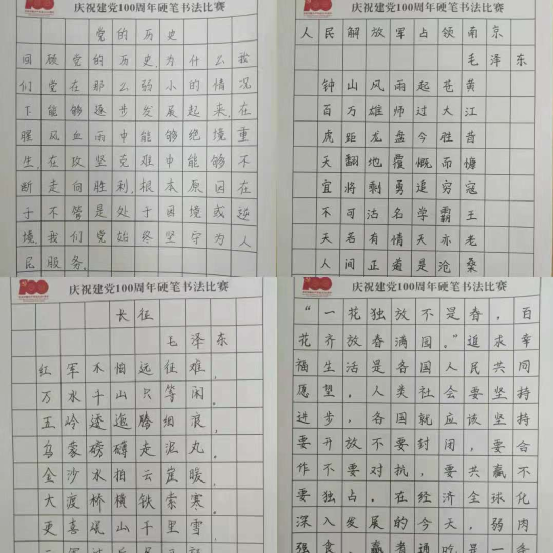 庆祝建党100周年硬笔书法比赛
党的历史
回顾党的历史,为什么我
们党在那么弱小的情况
下能够逐步发展起来,在
腥风血雨中能够绝境重
生,在攻坚克难中能够不
断走向胜利,根本原因在
于不管是处于困境或逆
境,我们党始终坚守为人
民服务。
人民解放军占领南京
毛泽东
钟山风雨起苍黄
百万雄师过大江
虎距龙盘今胜昔
天翻地覆慨而慷
宜将剩勇追穷寇
不可沽名学霸王
天若有情天亦老
人间正道是沧桑
100
庆祝建党100周年硬笔书法比赛
长征
毛泽东
红军不怕远征难,
万水千山只等闲。
五岭逶迤腾细浪,
乌蒙磅礴走泥丸。
金沙水拍云崖暖,
大渡桥横铁索寒。
更喜岷山千里雪,
100
庆祝建党100周年硬笔书法比赛
“一花独放不是春,百
花齐放春满园。”追求幸
福生活是各国人民共同
愿望。人类社会要坚持
进步,各国就应该坚持
要开放不要封闭,要合
作不要对抗,要共赢不
要独占。在经济全球化
深入发展的今天,弱肉
强食、赢者通吃是一条